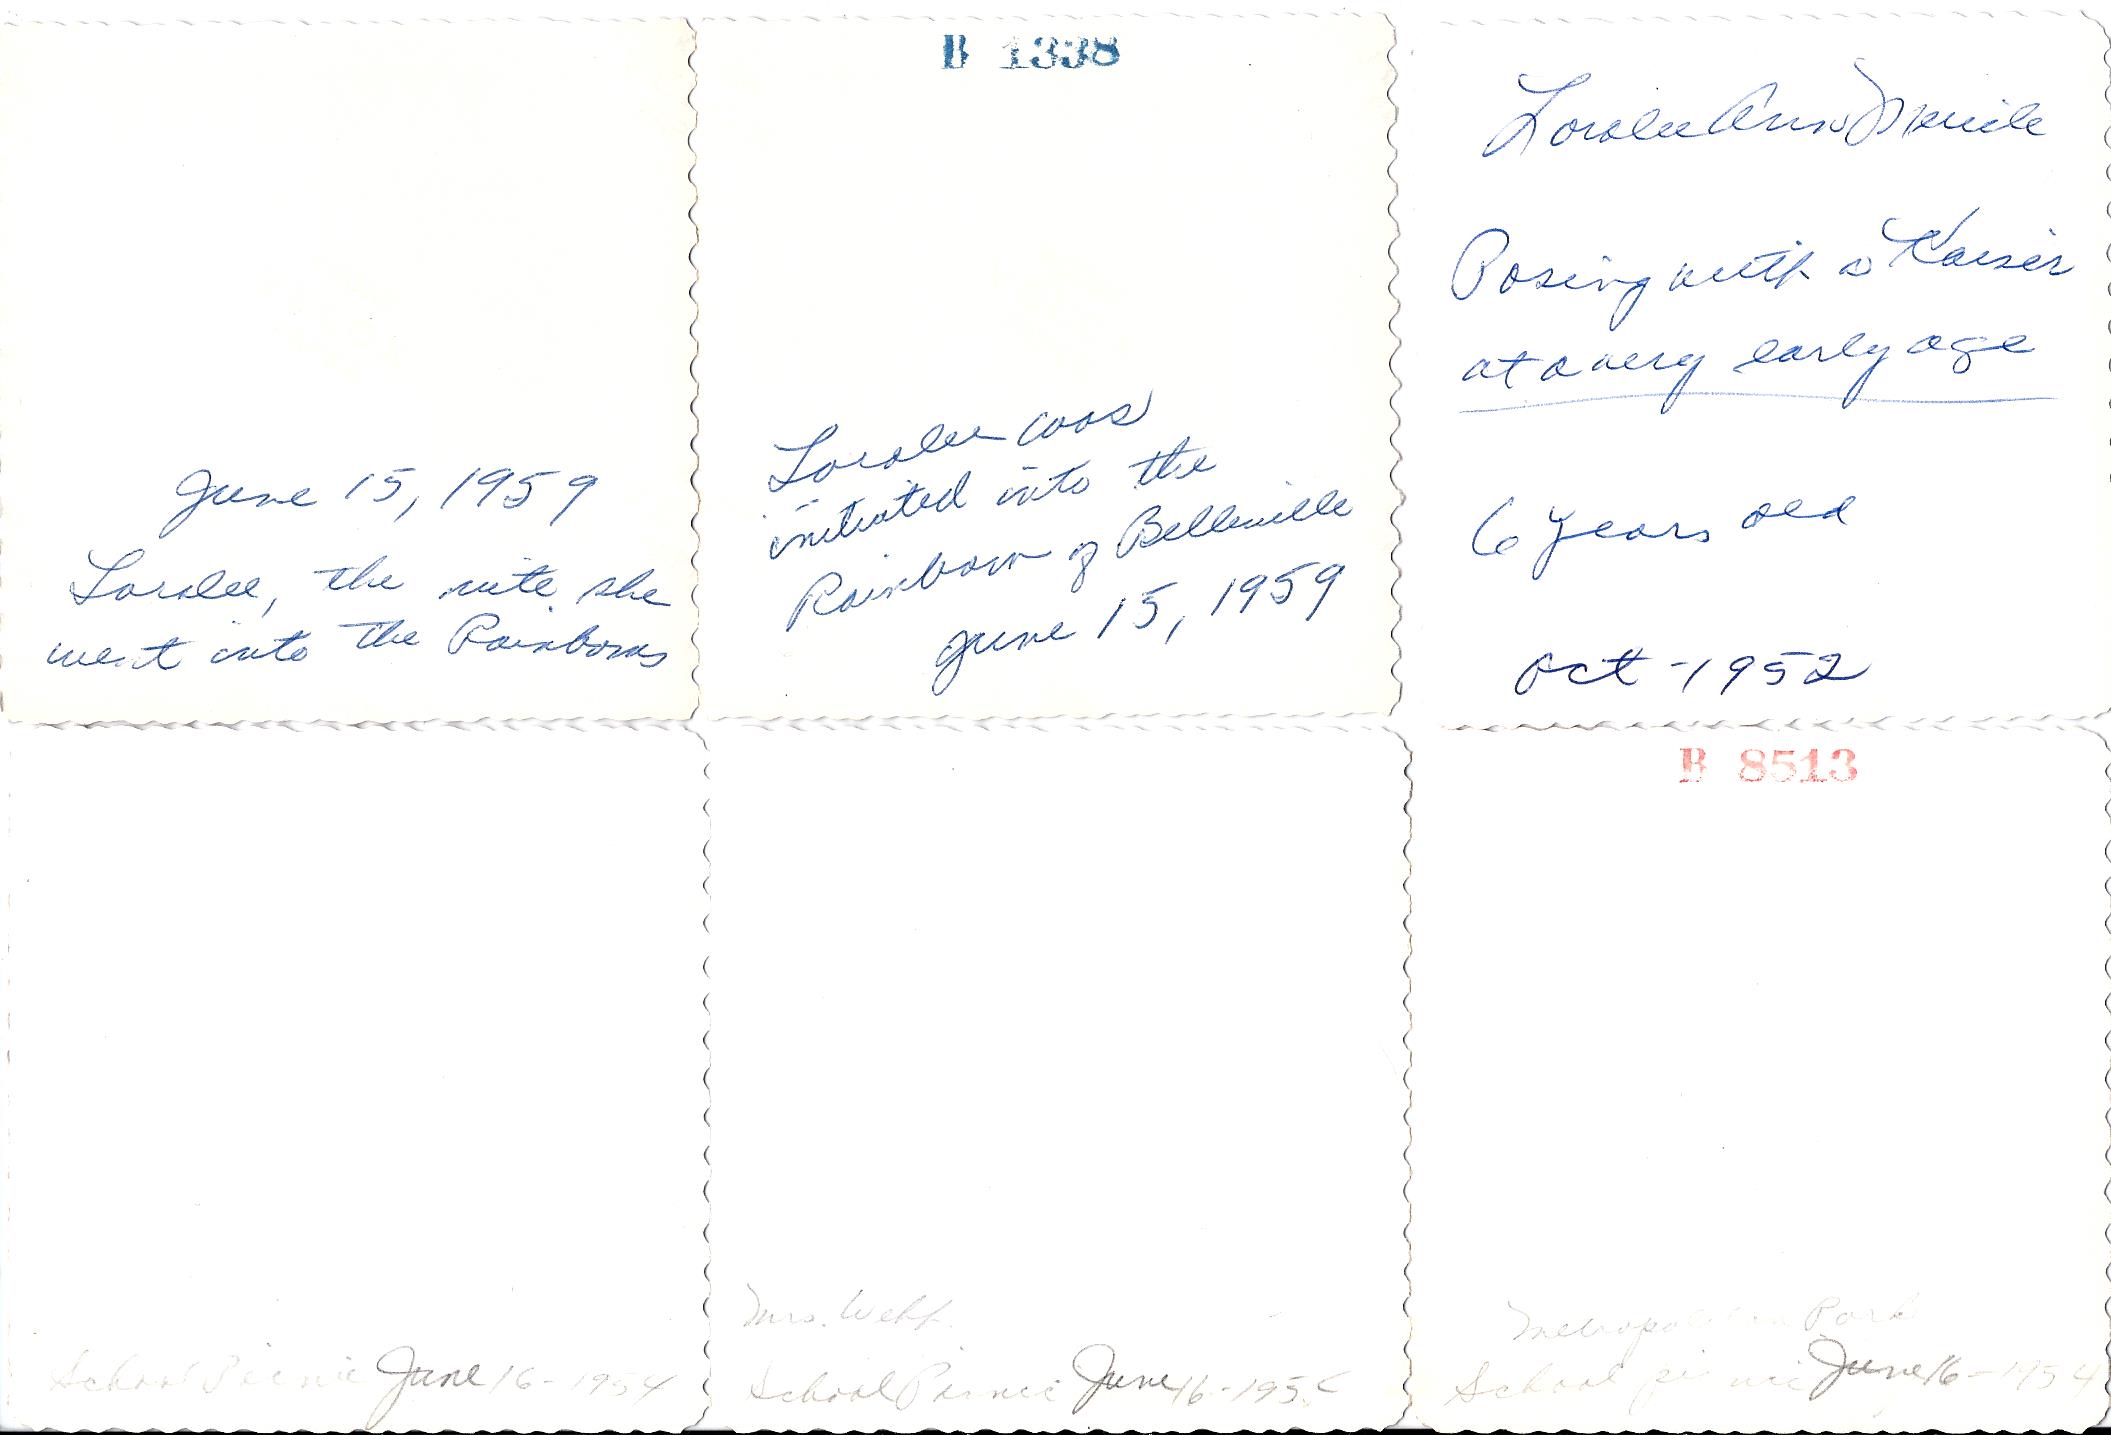 June 15, 1959
Loralee, the nite she
went into the Rainbows
B 1338
Loralee was
initiated into the
Rainbow of Belleville
June 15, 1959
Loralee Ann
Posing with a Kaiser
at a very early age
6 years old
Oct - 1952
School Picnic June 16 - 1954
Mrs. Webb.
School Picnic June 16 - 195
B 8513
Metropolitan Park
School picnic June 16 - 1954